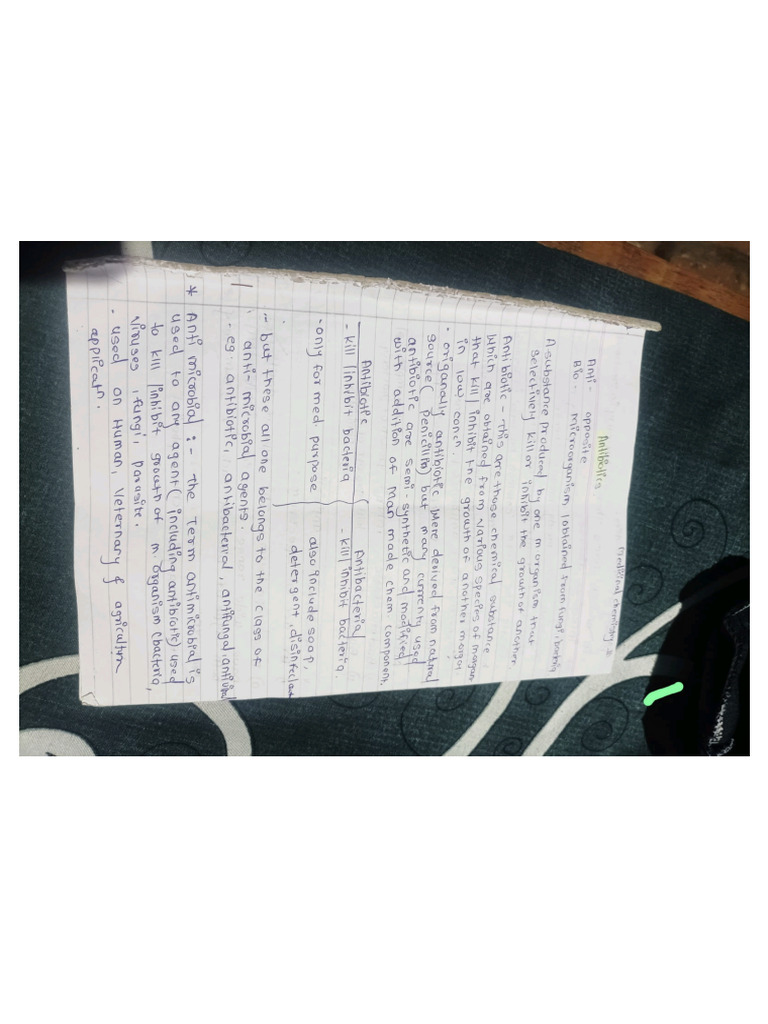 Medicinal chemistry
Antibiotics
Anti - opposite
Bio - microorganism (obtained from fungi, bacteria
A substance produced by one m.organism that
selectively kill or inhibit the growth of another
Antibiotic - This are those chemical substance
which are obtained from various species of morgan
that kill / inhibit the growth of another morgan
in low concn.
- origanally antibiotic were derived from natural
source (penicillin) but many currently used
antibiotic are semi-synthetic and modified
with addition of man made chem component.
Antibiotic Antibacterial
- kill / inhibit bacteria - kill / inhibit bacteria.
- only for med. purpose also include soap,
detergent, disinfectan
- but these all one belongs to the class of
anti-microbial agents.
- eg. antibiotic, antibacterial, antifungal, antiviral
* Anti microbial :- The Term antimicrobial is
used to any agent (including antibiotic) used
to kill / inhibit growth of m.organism (bacteria,
viruses, fungi, parasite.
- used on Human, Veternary & agricultrn
applicatn.